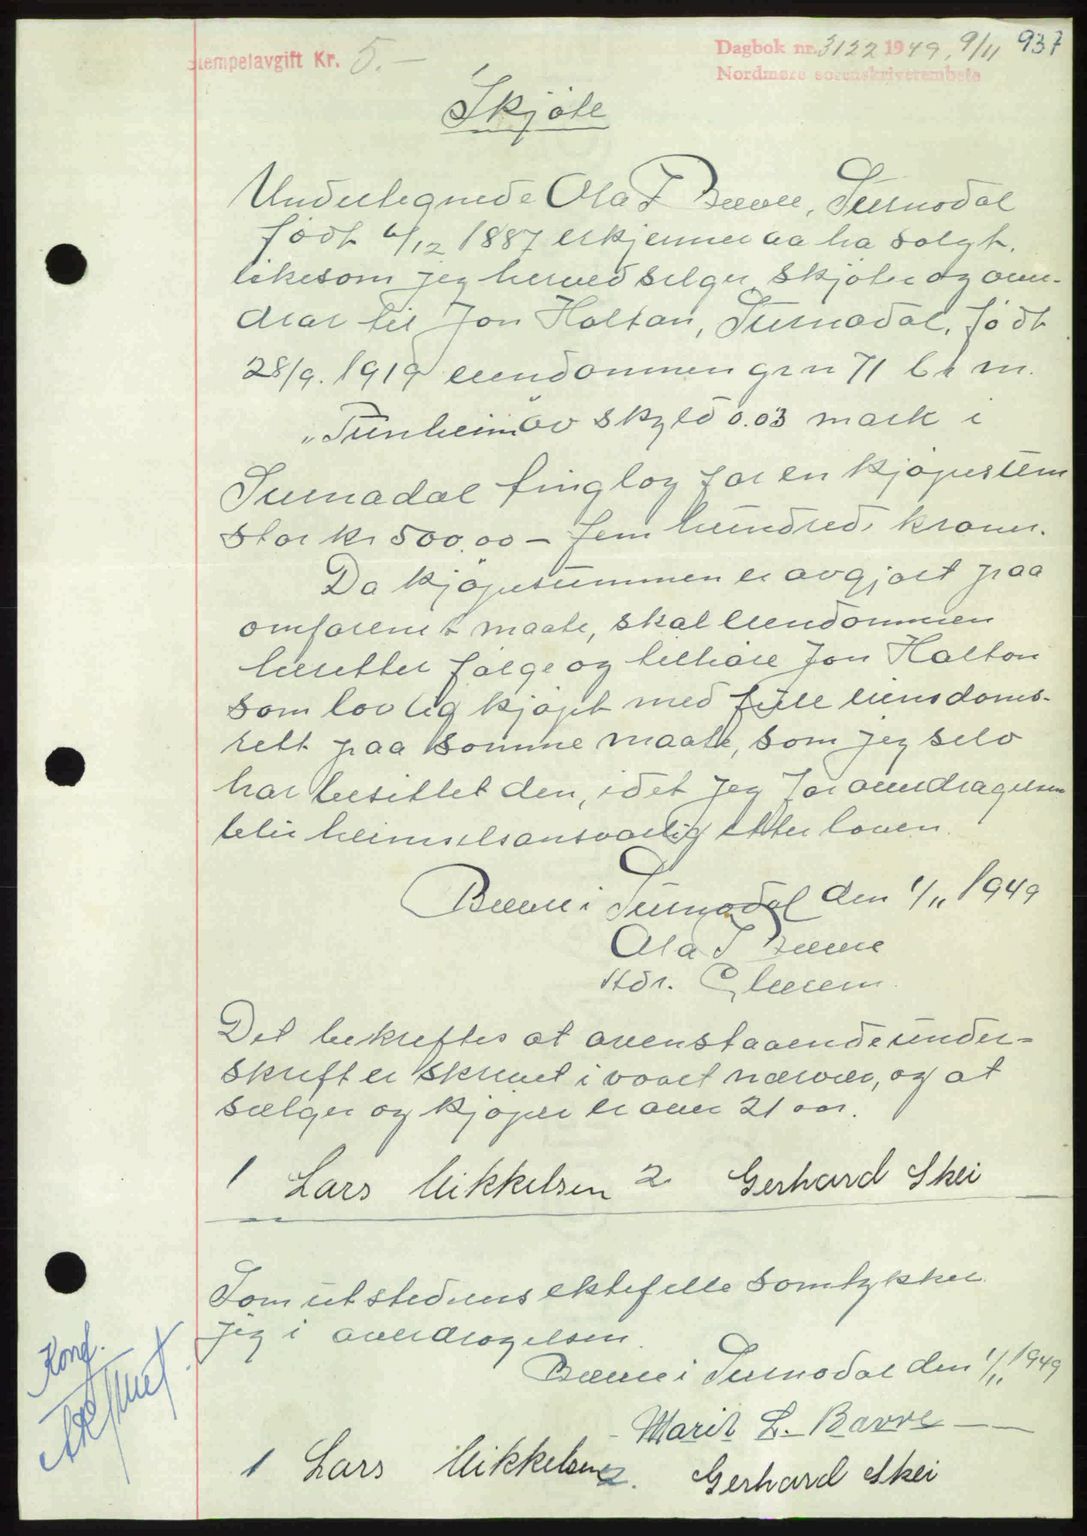 Stempelavgift Kr. 5.- Dagbok nr. 3122 1949, 9/11 937
Nordmøre sorenskriverembete
Skjøte
Undertegnede Ola T Bæver, Surnadal
født 6/12 1887 erkjenner aa ha solgt,
likesom jeg herved selger, skjøter og over-
drar til Jon Holtan, Surnadal, født
28/9. 1919 eiendommen gr n 71 b n
"Tunheim" av skyld 0.03 mark i
Surnadal tinglag for en kjøpesum
stor kr 500.00 - fem hundrede kroner.
Da kjøpesummen er avgjort paa
omforenet maate, skal eiendommen
heretter følge og tilhøre Jon Holtan
som lovlig kjøpt med full eiendoms-
rett paa samme maate, som jeg selv
har besittet den, idet jeg for overdragelsen
blir heimelsansvarlig etter loven.
Bæver i Surnadal den 1/11 1949
Ola T Bæver
Det bekreftes at ovenstaaende under-
skrift er skrevet i vaart nærvær, og at
sælger og kjøper er over 21 aar.
1 Lars Mikkelsen 2 Gerhard Skei
Som utstederens ektefelle samtykker
jeg i overdragelsen.
Bæver i Surnadal den 1/11 1949
Marit L. Bævre
1 Lars Mikkelsen 2. Gerhard Skei
Konf.